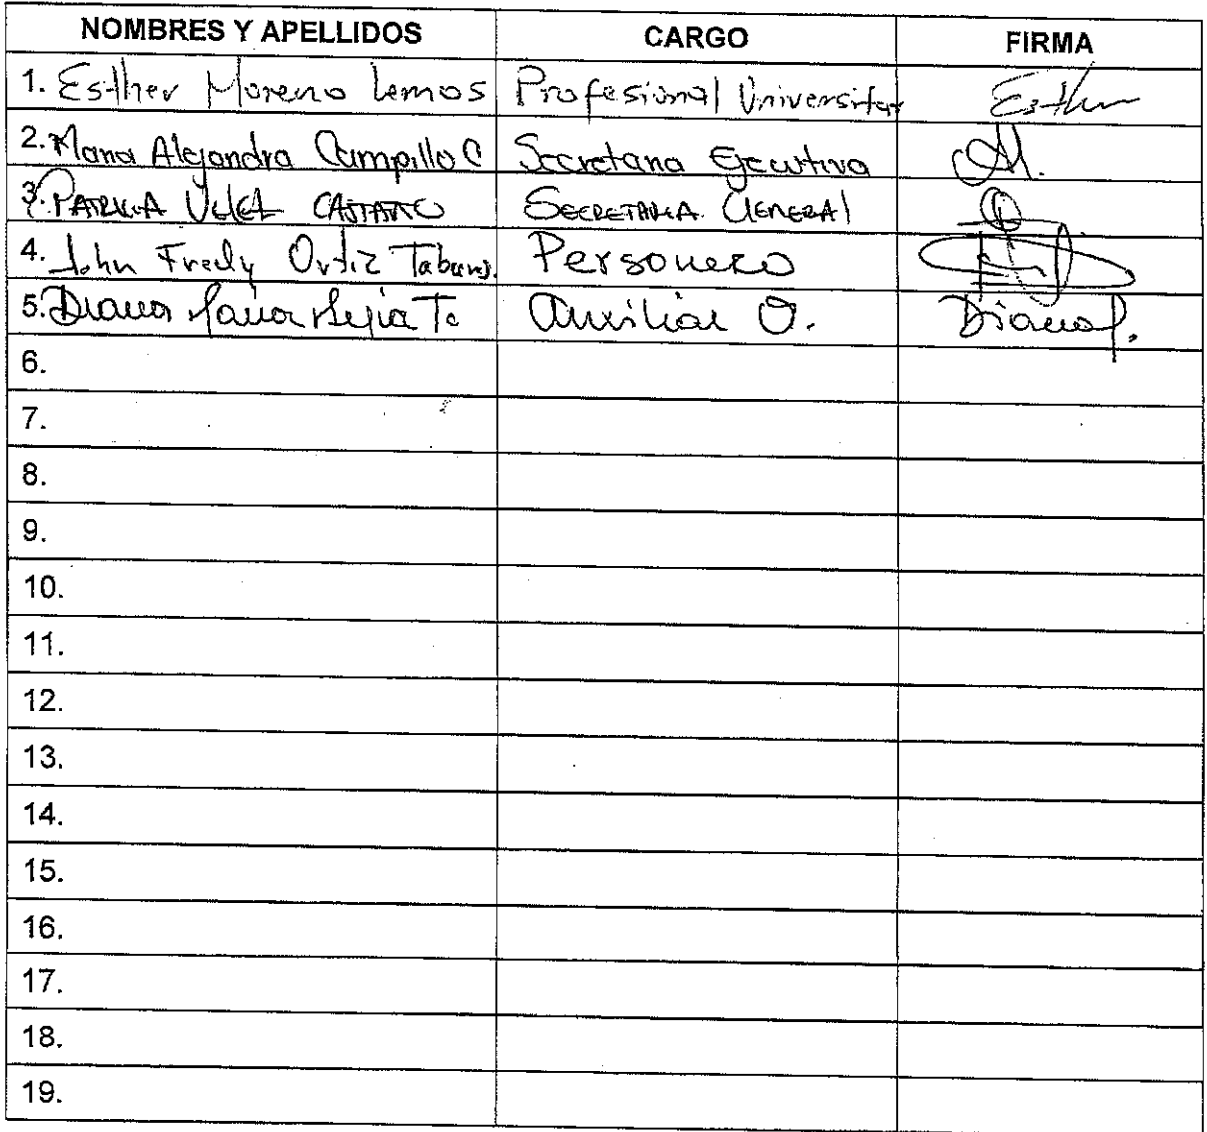 NOMBRES Y APELLIDOS CARGO FIRMA
1. Esther Moreno Lemos Profesional Universitar Esther
2. Maria Alejandra Campillo C Secretaria Ejecutiva
3. PATRICIA VELEZ CASTAÑO SECRETARIA GENERAL
4. John Fredy Ortiz Personero
5. Diana Maria Mejia T. Auxiliar O. Diana
6.
7.
8.
9.
10.
11.
12.
13.
14.
15.
16.
17.
18.
19.